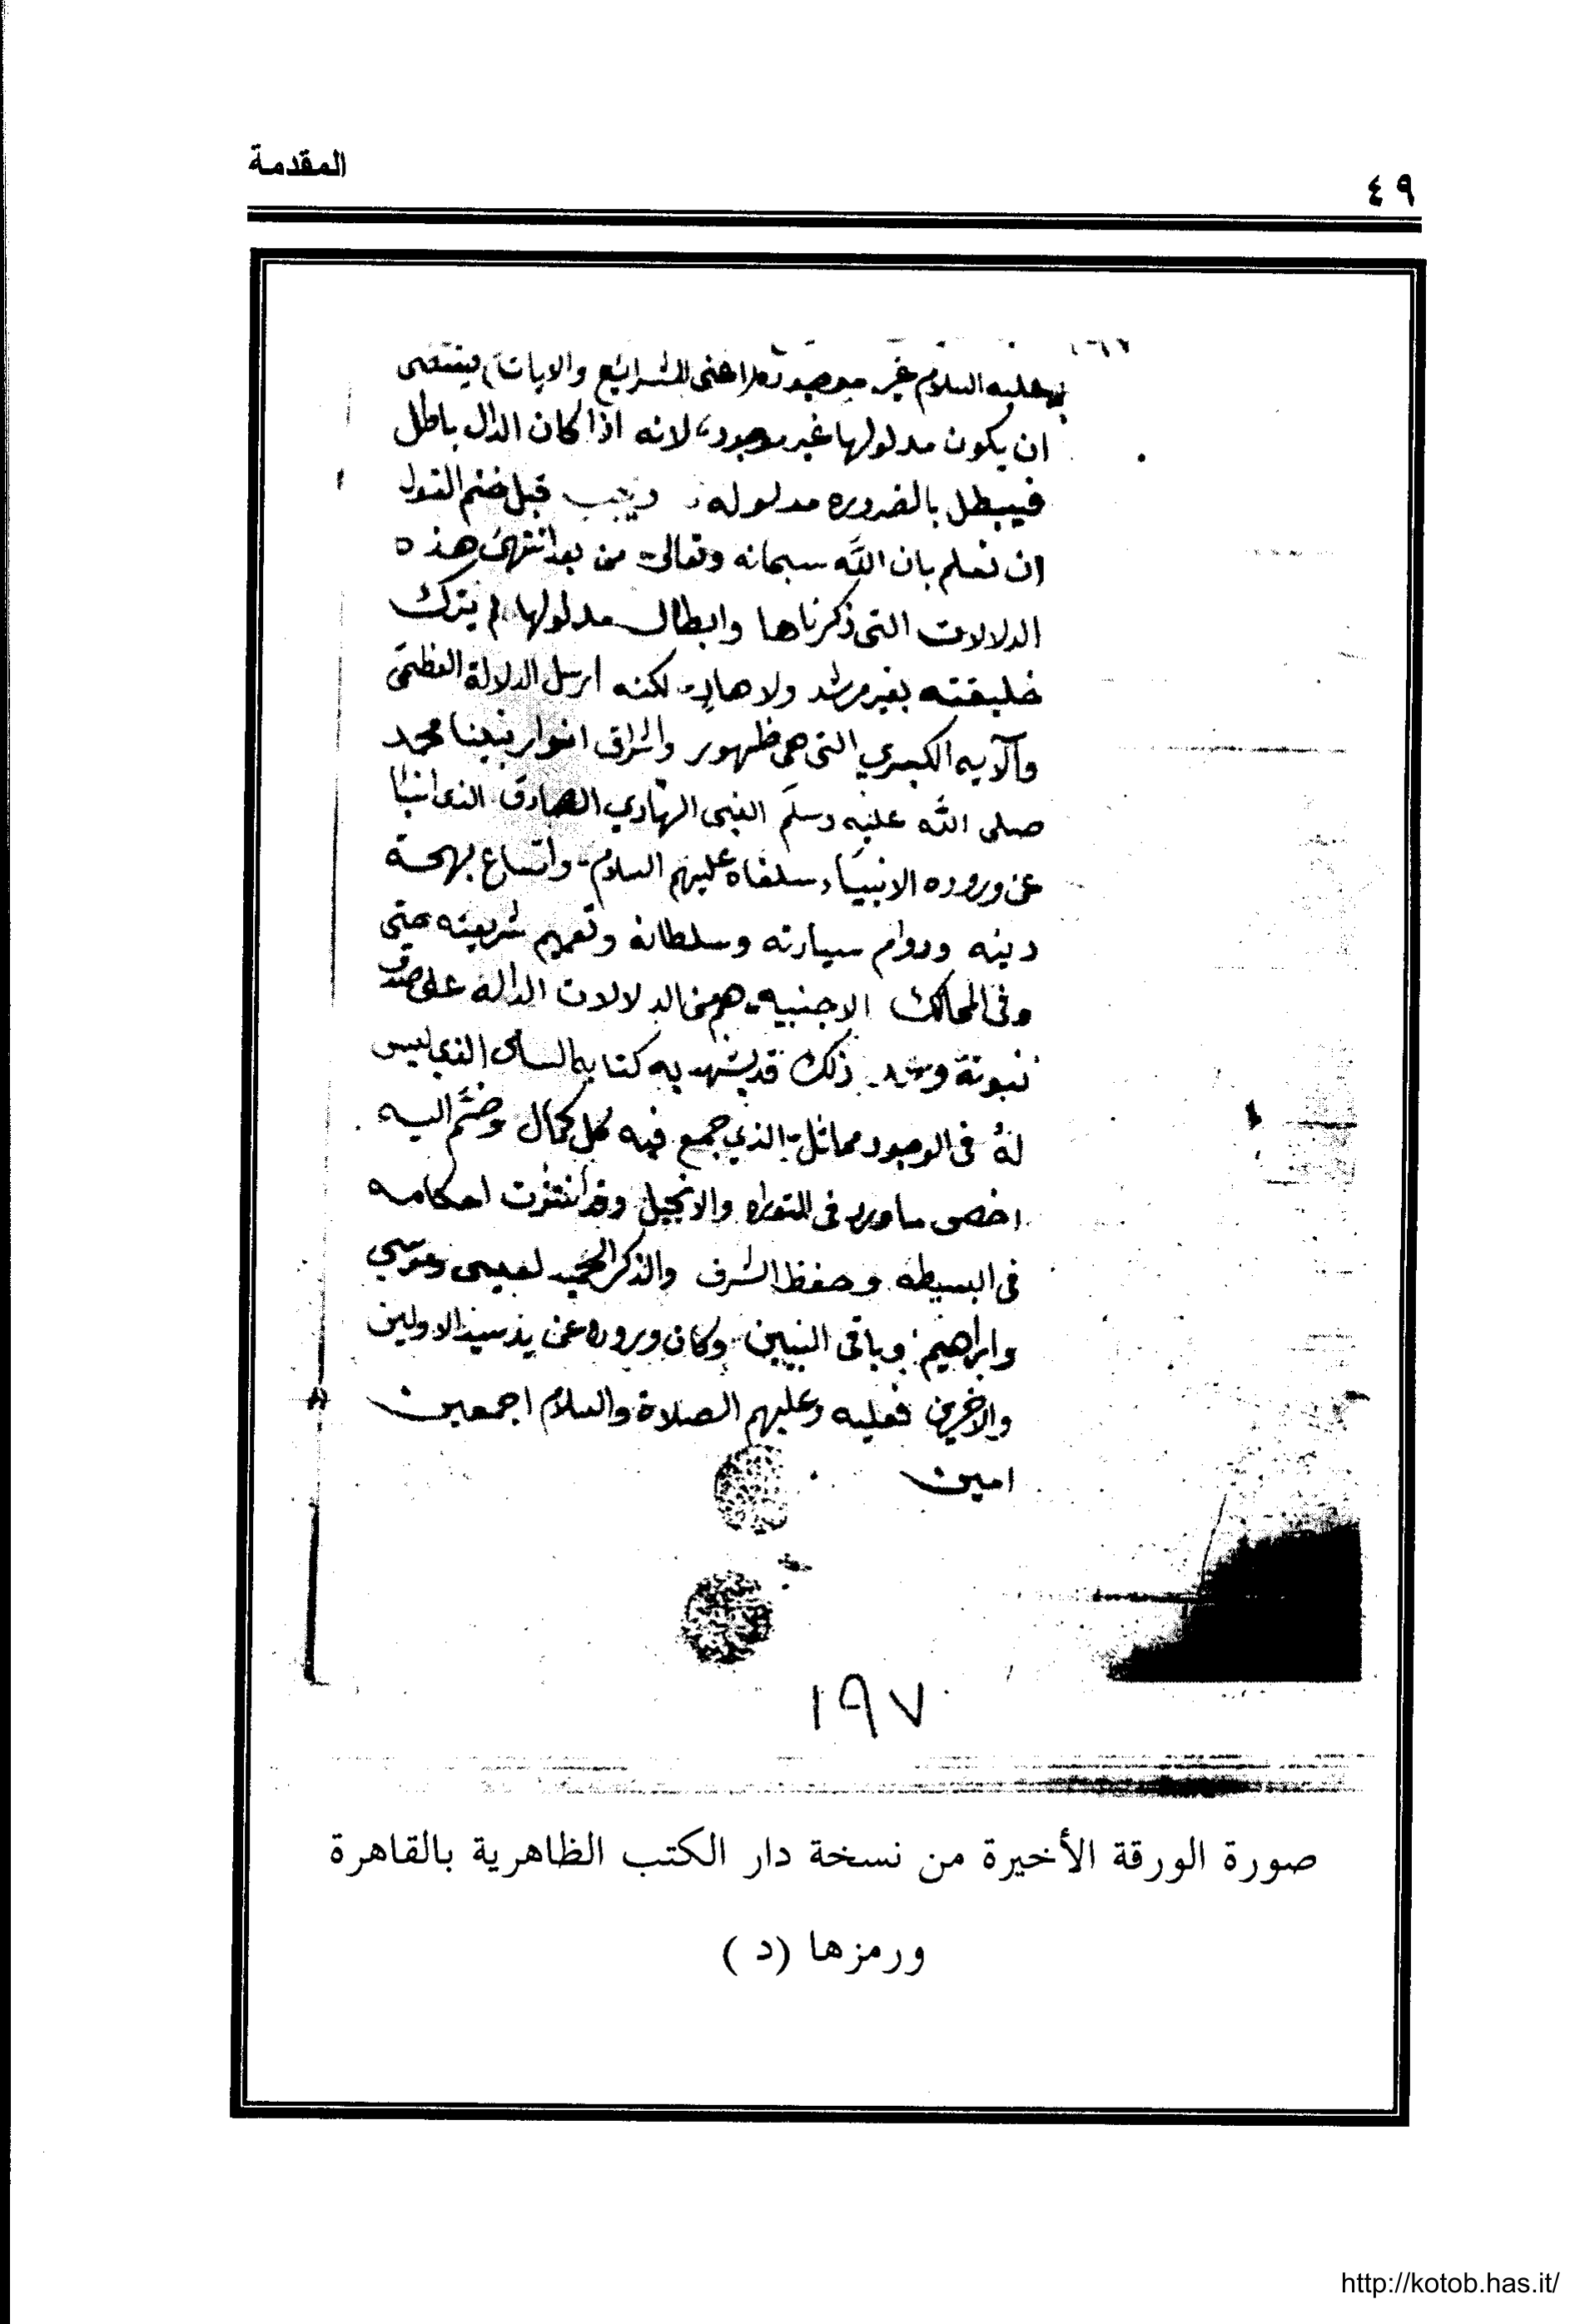 المقدمة
٤٩
عليه السلام غير موجوده اعنى الشرائع والايات يقتضى
ان يكون مدلولها غير موجود، لانه اذا كان الدال باطل
فيبطل بالضروره مدلوله ويجب قبل ختم القول
ان نعلم بان الله سبحانه وتعالى من بعد انتهى هذه
الدلالات التى ذكرناها وابطال مدلولها لم يترك
خليقته بغير مرشد ولا هاد لكنه ارسل الدلالة العظمى
والآيه الكبري التى هى ظهور واشراق انوار نبينا محمد
صلى الله عليه وسلم النبى الهادي الصادق الذى انبا
عن وروده الانبياء عليهم السلام واتساع بهجة
دينه ودوام سيادته وسلطانه وتعميم شريعته حتى
وفى الممالك الاجنبيه من الدلالات الداله على صدق
نبوتة ذلك قد يشهد به كتابه الذي ليس
لهُ فى الوجود مماثل الذي جمع فيه كل كمال وضم اليه
اخص ما ورد فى التوراه والانجيل وقد انتشرت احكامه
فى البسيطه وحفظ الشرف والذكر المجيد لعيسى وموسي
وابراهيم وباقى النبيين وكان وروده عن يد سيد الاولين
والاخرين فعليه وعليهم الصلاة والسلام اجمعين
امين
١٩٧
صورة الورقة الأخيرة من نسخة دار الكتب الظاهرية بالقاهرة
ورمزها (د)
http://kotob.has.it/